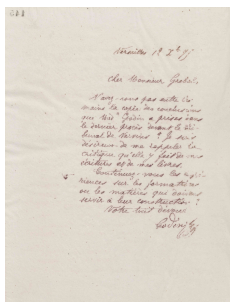 Versailles 1er Xbre 87
Cher Monsieur Grebel,
N'avez-vous pas entre les
mains la copie des conclusions
que Mme Godin a prises dans
le dernier procès devant le Tri-
bunal de Vervins ? Je suis
désireux de me rappeler la
critique qu'elle y fait de mes
écritures et de mes livres.
Continuez-vous les expé-
riences sur les
ou les matières qui doivent
servir à leur construction ?
Votre tout dévoué
Godin